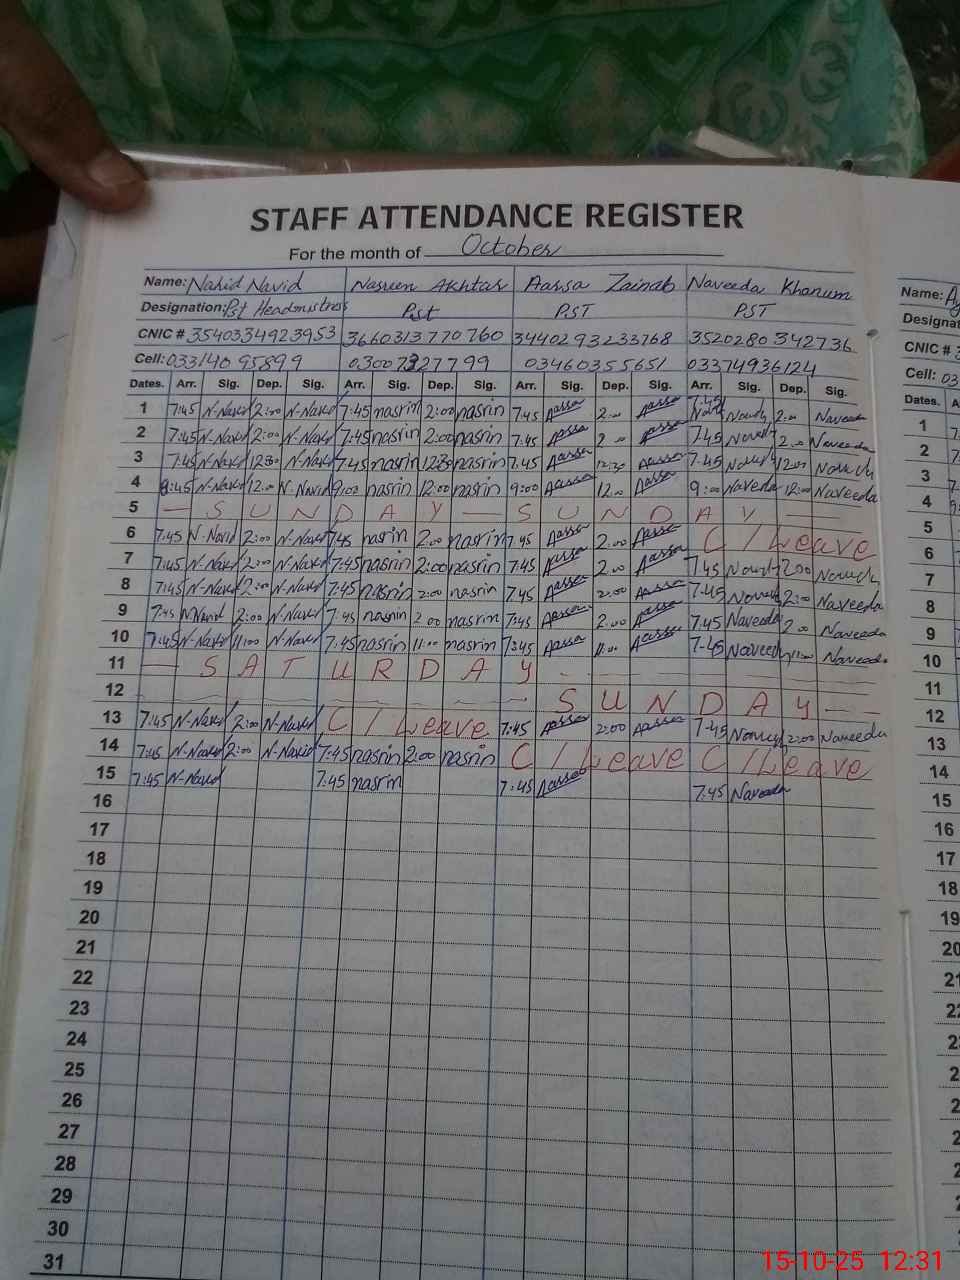 STAFF ATTENDANCE REGISTER
For the month of October
Name: Nahid Navid Nasreen Akhtar Aassa Zainab Naveeda Khanum Name:
Designation: Pst Headmistress Pst PST PST Designat
CNIC # 3540334923953 3660313770760 3440293233768 3520280342736 CNIC #
Cell: 03314095899 03007327799 03460355651 03374936124 Cell: 03
Dates. Arr. Sig. Dep. Sig. Arr. Sig. Dep. Sig. Arr. Sig. Dep. Sig. Arr. Sig. Dep. Sig. Dates. A
1 7:45 N-Navid 2:00 N-Navid 7:45 nasrin 2:00 nasrin 7:45 Aassa 2:00 Aassa 7:45 2:00 Naveeda 1
2 7:45 N-Navid 2:00 N-Navid 7:45 nasrin 2:00 nasrin 7:45 Aassa 2:00 Aassa 7:45 2:00 Naveeda 2
3 7:45 N-Navid 12:30 N-Navid 7:45 nasrin 12:30 nasrin 7:45 Aassa 12:30 Aassa 7:45 12:00 3
4 8:45 N-Navid 12:00 N-Navid 9:00 nasrin 12:00 nasrin 9:00 Aassa 12:00 Aassa 9:00 Naveda 12:00 Naveeda 4
5 — SUNDAY — SUNDAY — 5
6 7:45 N-Navid 2:00 N-Navid 7:45 nasrin 2:00 nasrin 7:45 Aassa 2:00 Aassa C/Leave 6
7 7:45 N-Navid 2:00 N-Navid 7:45 nasrin 2:00 nasrin 7:45 Aassa 2:00 Aassa 7:45 2:00 7
8 7:45 N-Navid 2:00 N-Navid 7:45 nasrin 2:00 nasrin 7:45 Aassa 2:00 Aassa 7:45 2:00 Naveeda 8
9 7:45 N-Navid 2:00 N-Navid 7:45 nasrin 2:00 nasrin 7:45 Aassa 2:00 Aassa 7:45 Naveeda 2:00 Naveeda 9
10 7:45 N-Navid 11:00 N-Navid 7:45 nasrin 11:00 nasrin 7:45 Aassa 11:00 Aassa 7:45 Naveeda 11:00 Naveeda 10
11 — SATURDAY — 11
12 — SUNDAY — 12
13 7:45 N-Navid 2:00 N-Navid C/Leave 7:45 Aassa 2:00 Aassa 7:45 2:00 Naveeda 13
14 7:45 N-Navid 2:00 N-Navid 7:45 nasrin 2:00 nasrin C/Leave C/Leave 14
15 7:45 N-Navid 7:45 nasrin 7:45 Aassa 7:45 Naveeda 15
16 16
17 17
18 18
19 19
20 20
21 21
22 22
23
24
25
26
27
28
29
30
31
15-10-25 12:31